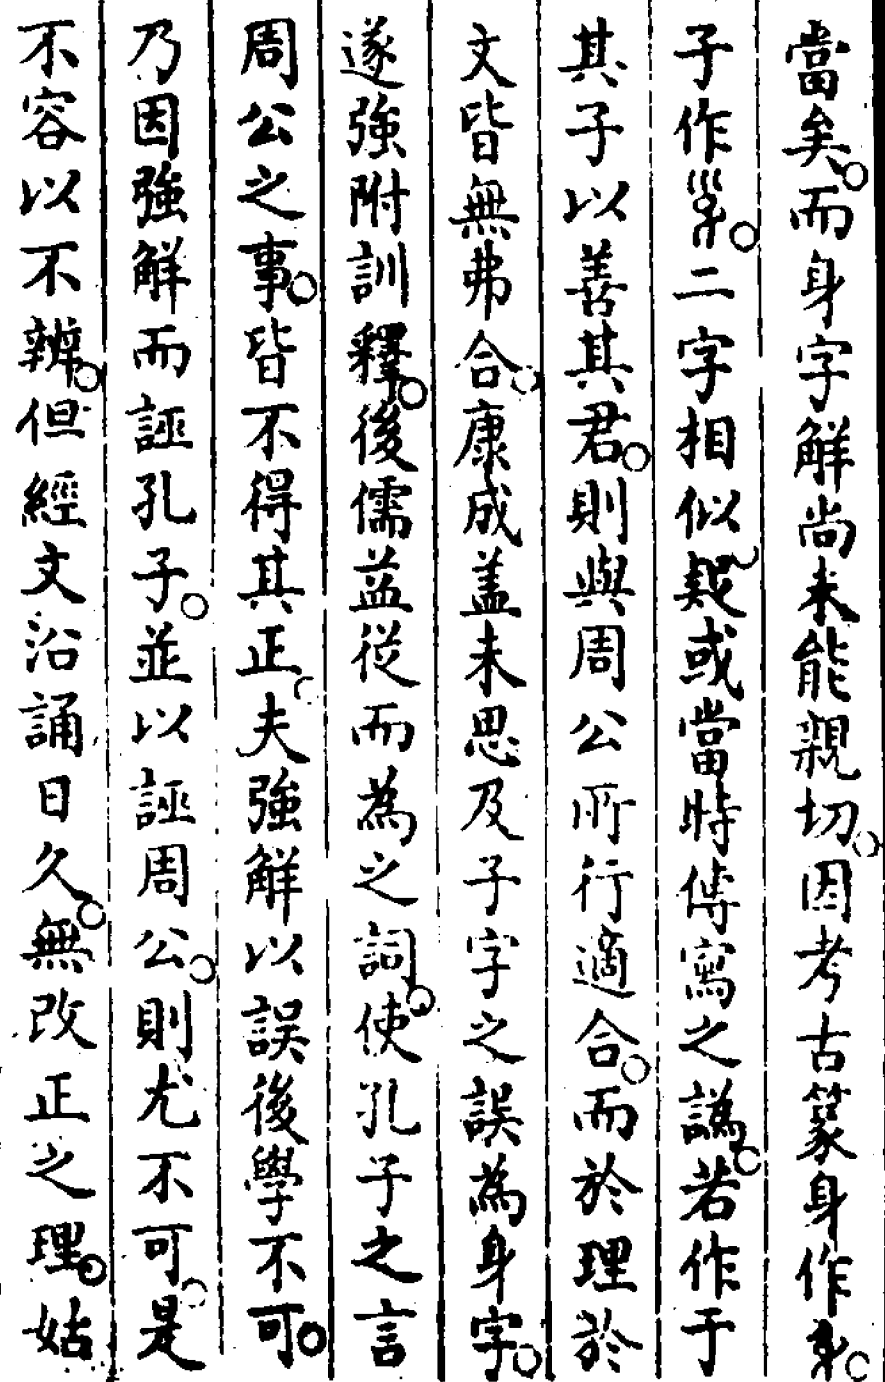 當矣而身字解尚未能親切因考古篆身作𨈑
子作㜽二字相似疑或當時傳寫之譌若作于
其子以善其君則與周公所行適合而於理於
文皆無弗合康成盖未思及子字之誤為身字
遂強附訓釋後儒益從而為之詞使孔子之言
周公之事皆不得其正夫強解以誤後學不可
乃因強解而誣孔子並以誣周公則尤不可是
不容以不辨但經文沿誦日久無改正之理姑